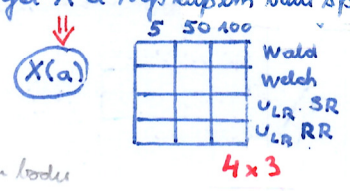 X(a)
5 50 100
Wald
Welch
U_LR SR
U_LR RR
4 x 3
body